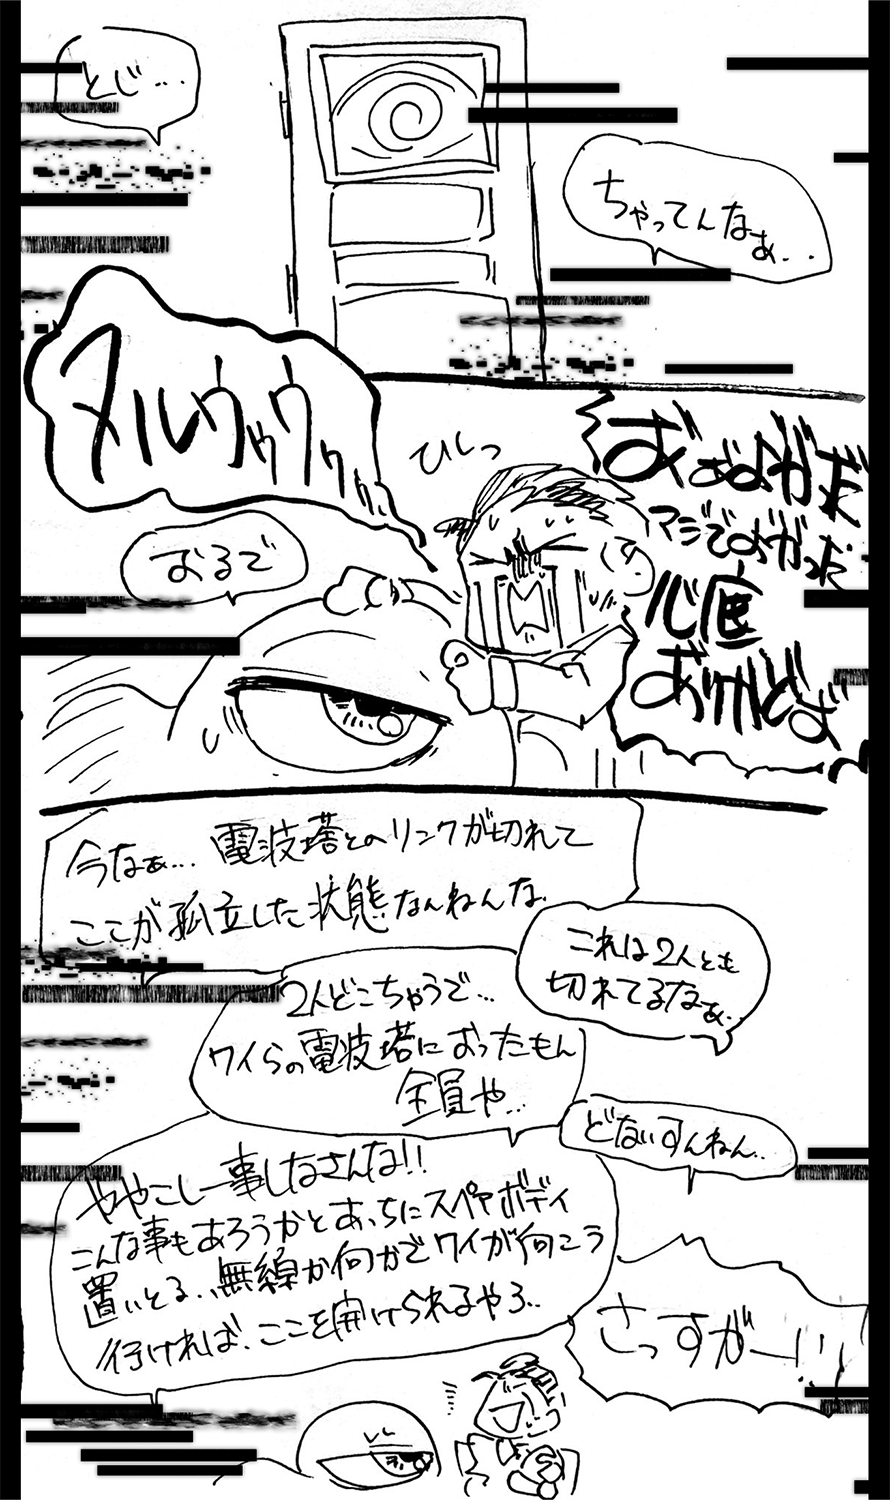 とじ…
ちゃってんなぁ..
ヌルゥゥゥゥゥ
ひしっ
おるで
マジでよがっだ
心底
今なぁ… 電波塔とのリンクが切れて
ここが孤立した状態なんねんな.
これは2人とも
切れてるなぁ..
2人どこちゃうで…
ワイらの電波塔におったもん
全員や…
どないすんねん..
ややこし一事しなさんな!!
こんな事もあろうかとあっちにスペヤボディ
置いとる..無線か何かでワイが向こう
行ければ.ここを開けられるやろ..
さっすがー!!